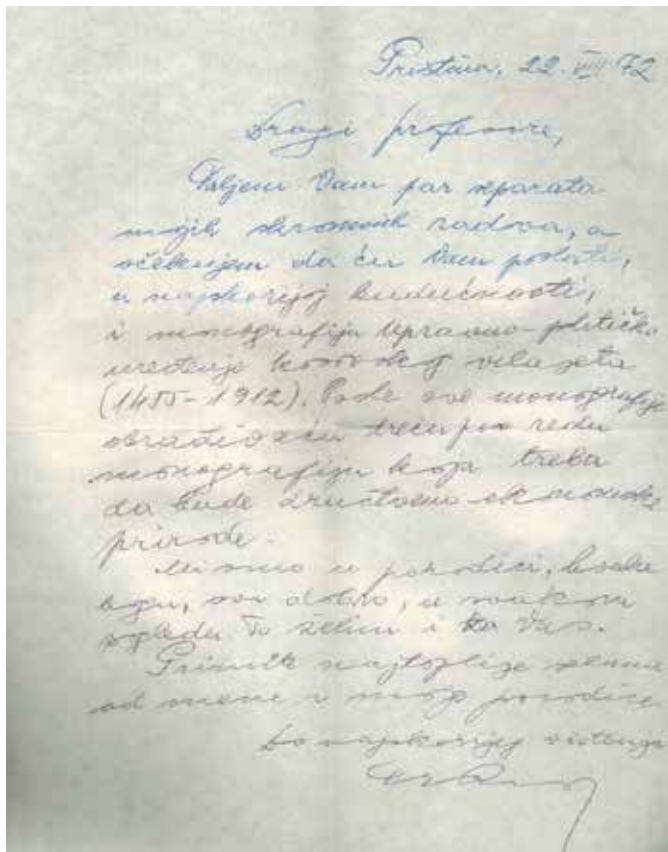 Priština, 22. VIII 72
Dragi profesore,
Šaljem Vam par separata
mojih skromnih radova, a
očekujem da ću Vam poslati,
u najskorijoj budućnosti,
i monografiju Upravno-političko
uređenje kosovskog vilajeta
(1455-1912). Posle ove monografije
obradiću treću po redu
monografiju koja treba
da bude društveno-ekonomske
prirode.
Mi smo u porodici, hvala
bogu, svi dobro, u svakom
pogledu. To želim i za Vas.
Primite najtoplije
od mene i moje porodice
Do najskorijeg viđenja